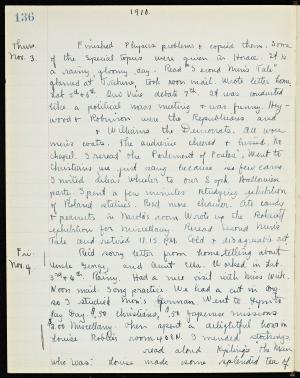 136
1910.
Thurs. Nov. 3.
Finished Physics problems & copied them. Some
of the special topics were given in Horace. It is
a rainy, gloomy day. Read "Second Nun's Tale"
glanced at Tribune, took noon mail. Wrote letter home
Lat 5th & 6th. Qui Vive debate 7th. It was conducted
like a political mass meeting & was funny. Hey-
wood & Robinson were the Republicans and
& Williams the Democrats. All wore
men's coats. The audience cheered & hissed. No
chapel. I reread "The Parlement of Foules". Went to
Christians just early because so few came
I invited to our Sy. Halloween
party. Spent a few minutes studying exhibition
of Roland statues. Rest more chauver. Ate candy
& peanuts in room Wrote up the Roland
exhibition for Miscellany. Reread Second Nun's
Tale and retired 11.15 P.M. Cold & disagreeable out
Fri. Nov. 4
Bad sorry letter from home telling about
Uncle George and Aunt Ula. Worked in Lat.
3rd & 4th. Rainy. Had a nice visit with Miss
Noon mail. Song practice. We had a cut in
so I studied Went to Gym to
Pay Day $.50 Christians, $.50 expense missions
$2.00 Miscellany. Then spent a delightful hour in
Louise Robbins' room I mended stockings,
read aloud Kipling's The Man
who was. Louise made some splendid tea of